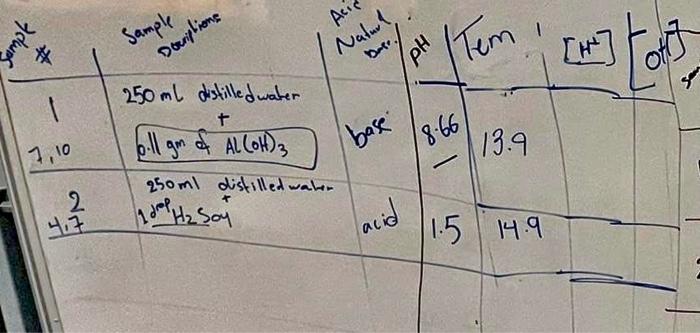 Sample # Sample Descriptions Acid Natural base pH Tem [H+] [OH]
1 250 ml distilled water
+
7,10 0.11 gm of Al(OH)3 base 8.66 13.9
2 250ml distilled water
+
4,7 1 drop H2SO4 acid 1.5 14.9